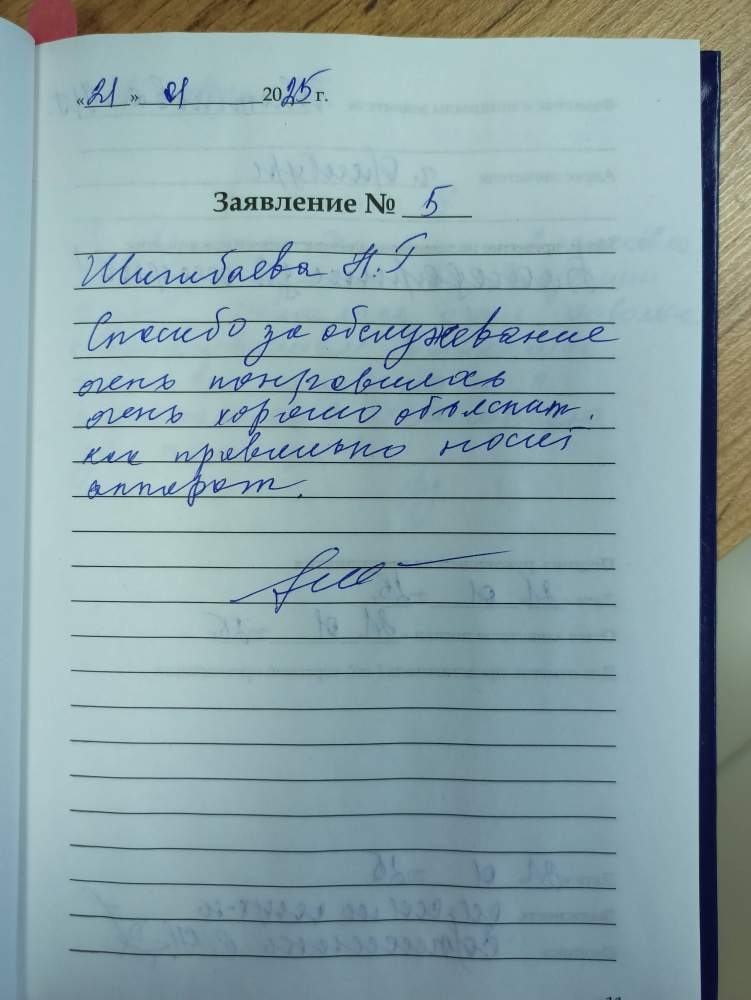 «21» 01 2025 г.
Заявление № 5
Шигибаева Н.Г
Спасибо за обслужевание
очень понравилось
очень хорошо объяснит.
как правильно носит
аппарат.